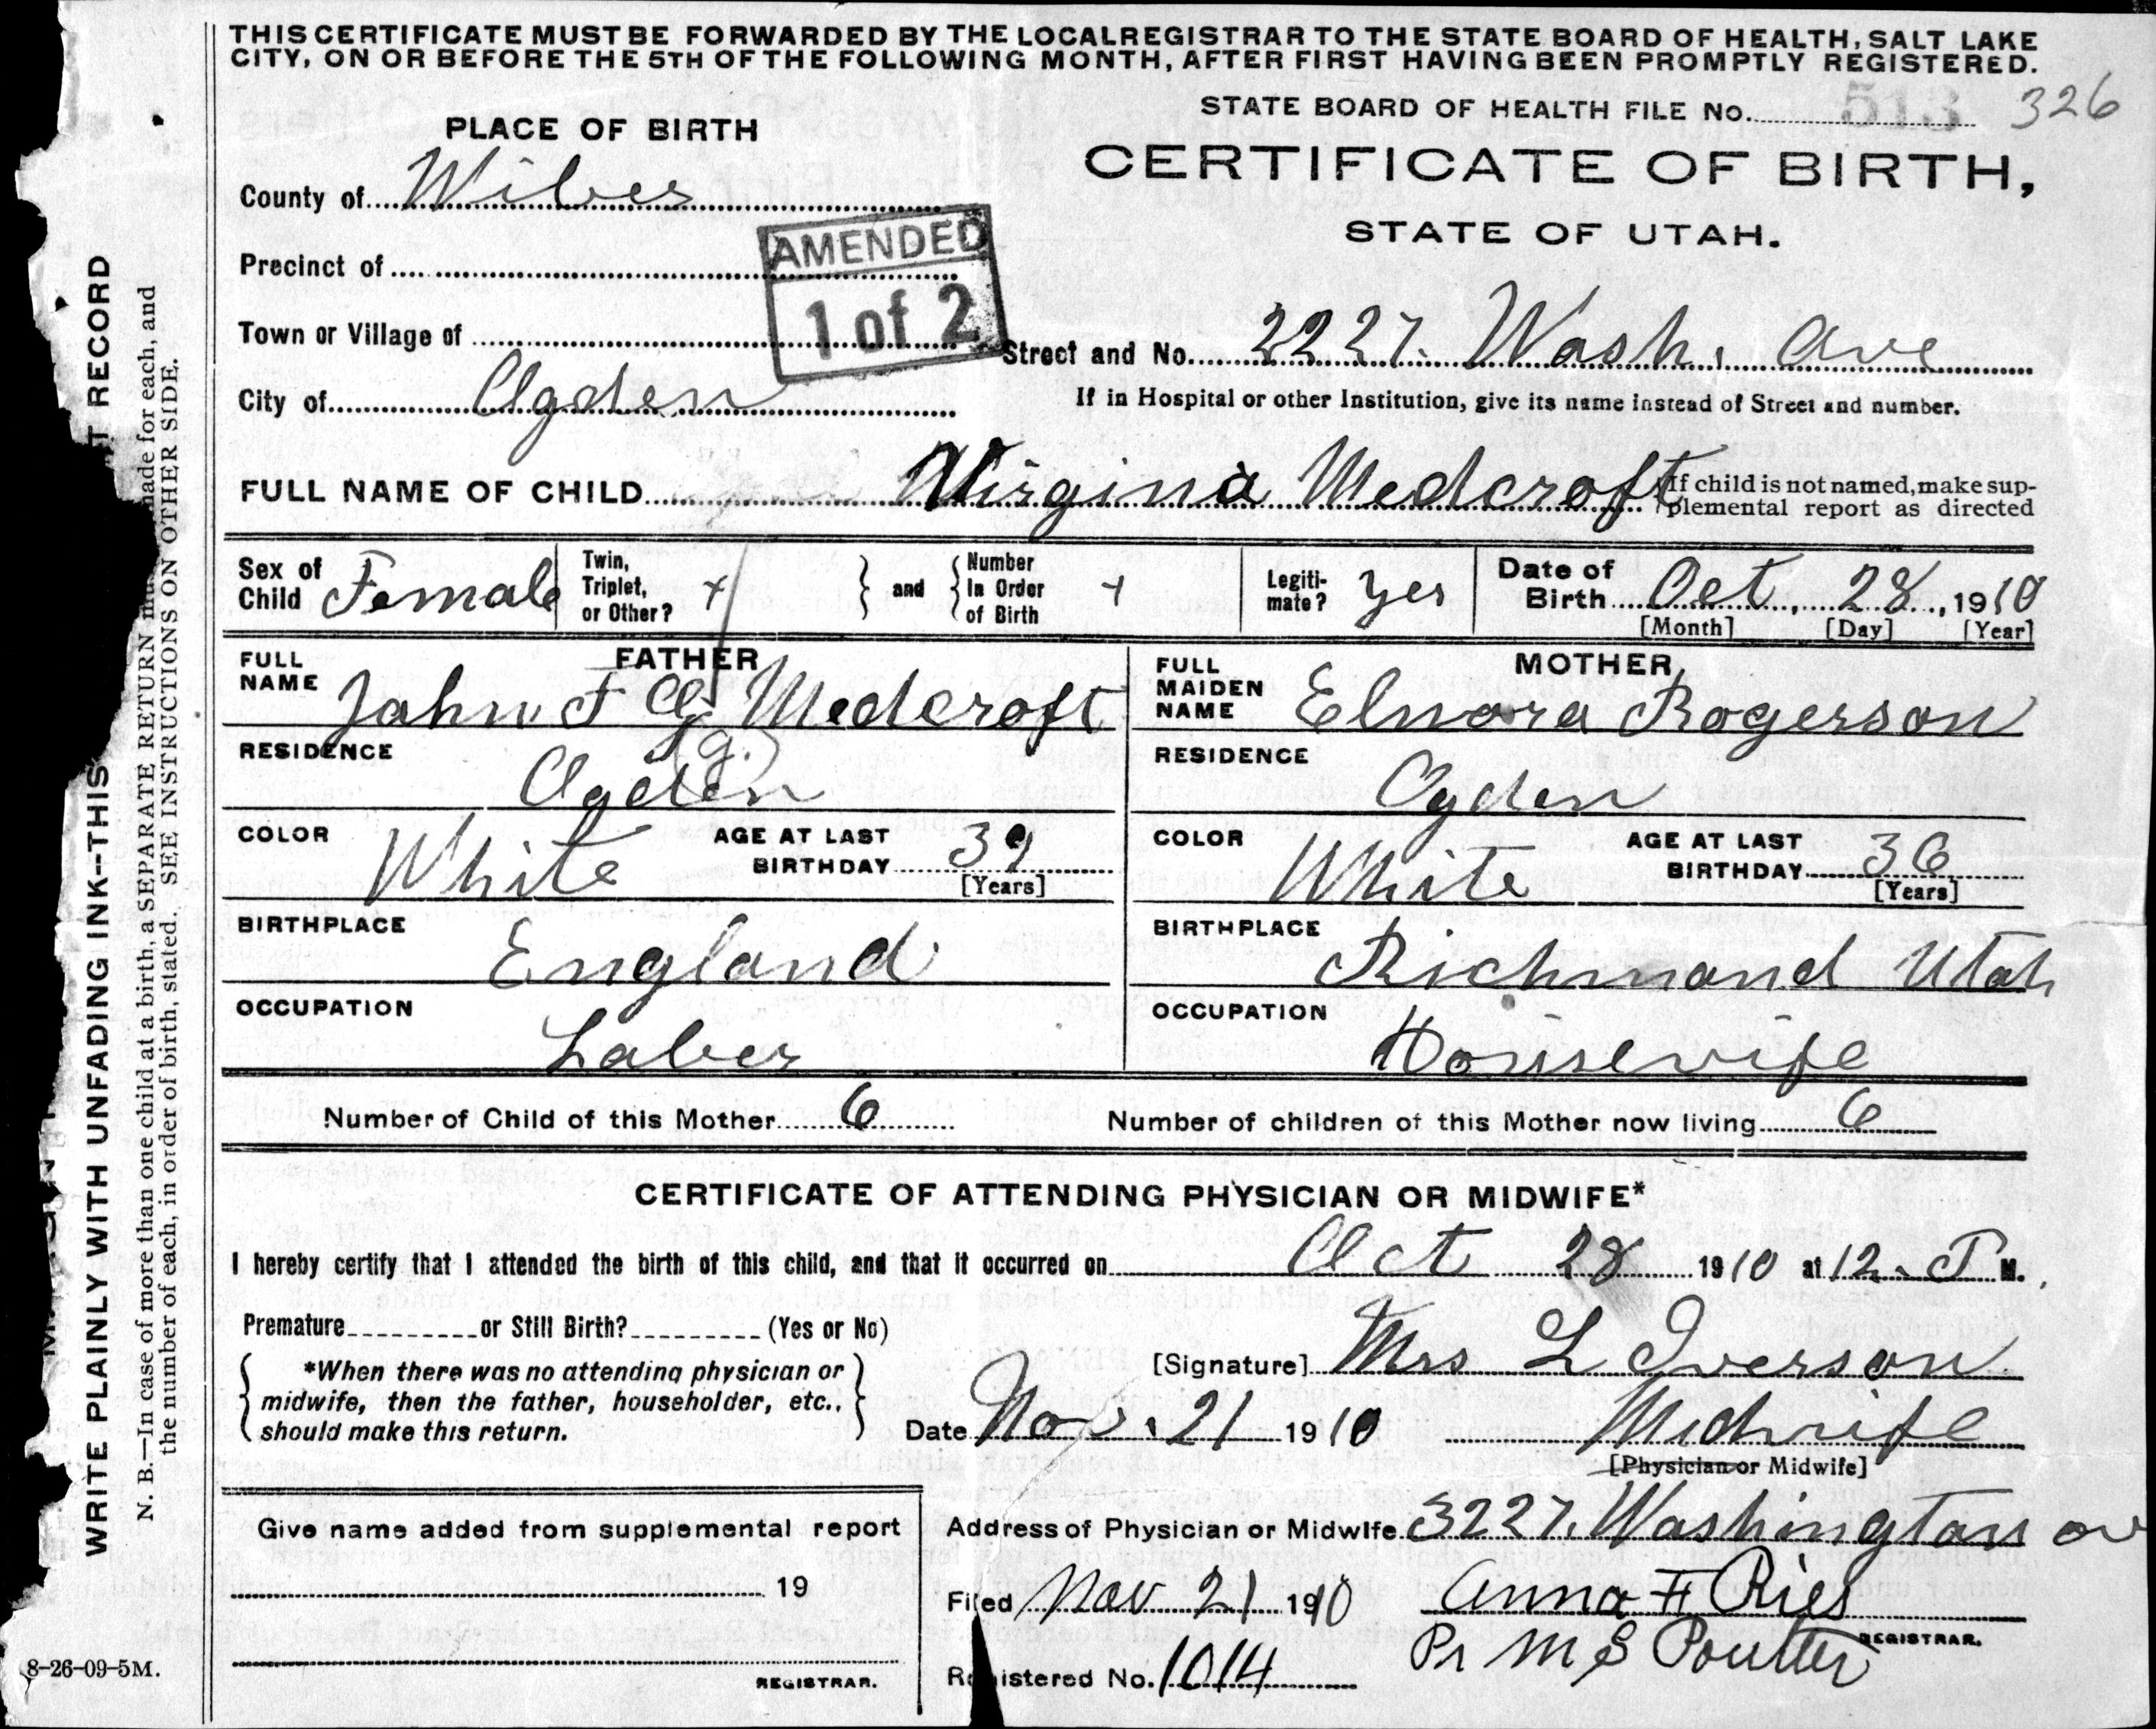 THIS CERTIFICATE MUST BE FORWARDED BY THE LOCAL REGISTRAR TO THE STATE BOARD OF HEALTH, SALT LAKE
CITY, ON OR BEFORE THE 5TH OF THE FOLLOWING MONTH, AFTER FIRST HAVING BEEN PROMPTLY REGISTERED.
STATE BOARD OF HEALTH FILE No. 513 326
PLACE OF BIRTH
CERTIFICATE OF BIRTH,
STATE OF UTAH.
County of Wiber
Precinct of
AMENDED
1 of 2
Town or Village of
Street and No. 2227. Wash. Ave
City of Ogden
If in Hospital or other Institution, give its name instead of Street and number.
FULL NAME OF CHILD Virgina Medcroft
If child is not named, make sup-
plemental report as directed
Sex of Child Female
Twin, Triplet, or Other? +
and
Number In Order of Birth +
Legiti-mate? yes
Date of Birth Oct. 28, 1910
[Month] [Day] [Year]
FATHER
FULL NAME John F G Medcroft
(g.)
RESIDENCE
Ogden
COLOR White
AGE AT LAST BIRTHDAY 39
[Years]
BIRTHPLACE
England
OCCUPATION
Laber
MOTHER
FULL MAIDEN NAME Elnora Rogerson
RESIDENCE
Ogden
COLOR White
AGE AT LAST BIRTHDAY 36
[Years]
BIRTHPLACE
Richmond Utah
OCCUPATION
Housewife
Number of Child of this Mother 6 Number of children of this Mother now living 6
CERTIFICATE OF ATTENDING PHYSICIAN OR MIDWIFE*
I hereby certify that I attended the birth of this child, and that it occurred on Oct 28 1910 at 12. P M.
Premature or Still Birth? (Yes or No)
*When there was no attending physician or
midwife, then the father, householder, etc.,
should make this return.
[Signature] Mrs L Iverson
Date Nov. 21 1910 Midwife
[Physician or Midwife]
Give name added from supplemental report
19
REGISTRAR.
8-26-09-5M.
Address of Physician or Midwife 3227. Washington av
Filed Nov 21 1910 Anna F Ries
REGISTRAR.
Pr M S Poulter
Registered No. 1014
WRITE PLAINLY WITH UNFADING INK--THIS
T RECORD
N. B.—In case of more than one child at a birth, a SEPARATE RETURN made for each, and
the number of each, in order of birth, stated. SEE INSTRUCTIONS ON OTHER SIDE.